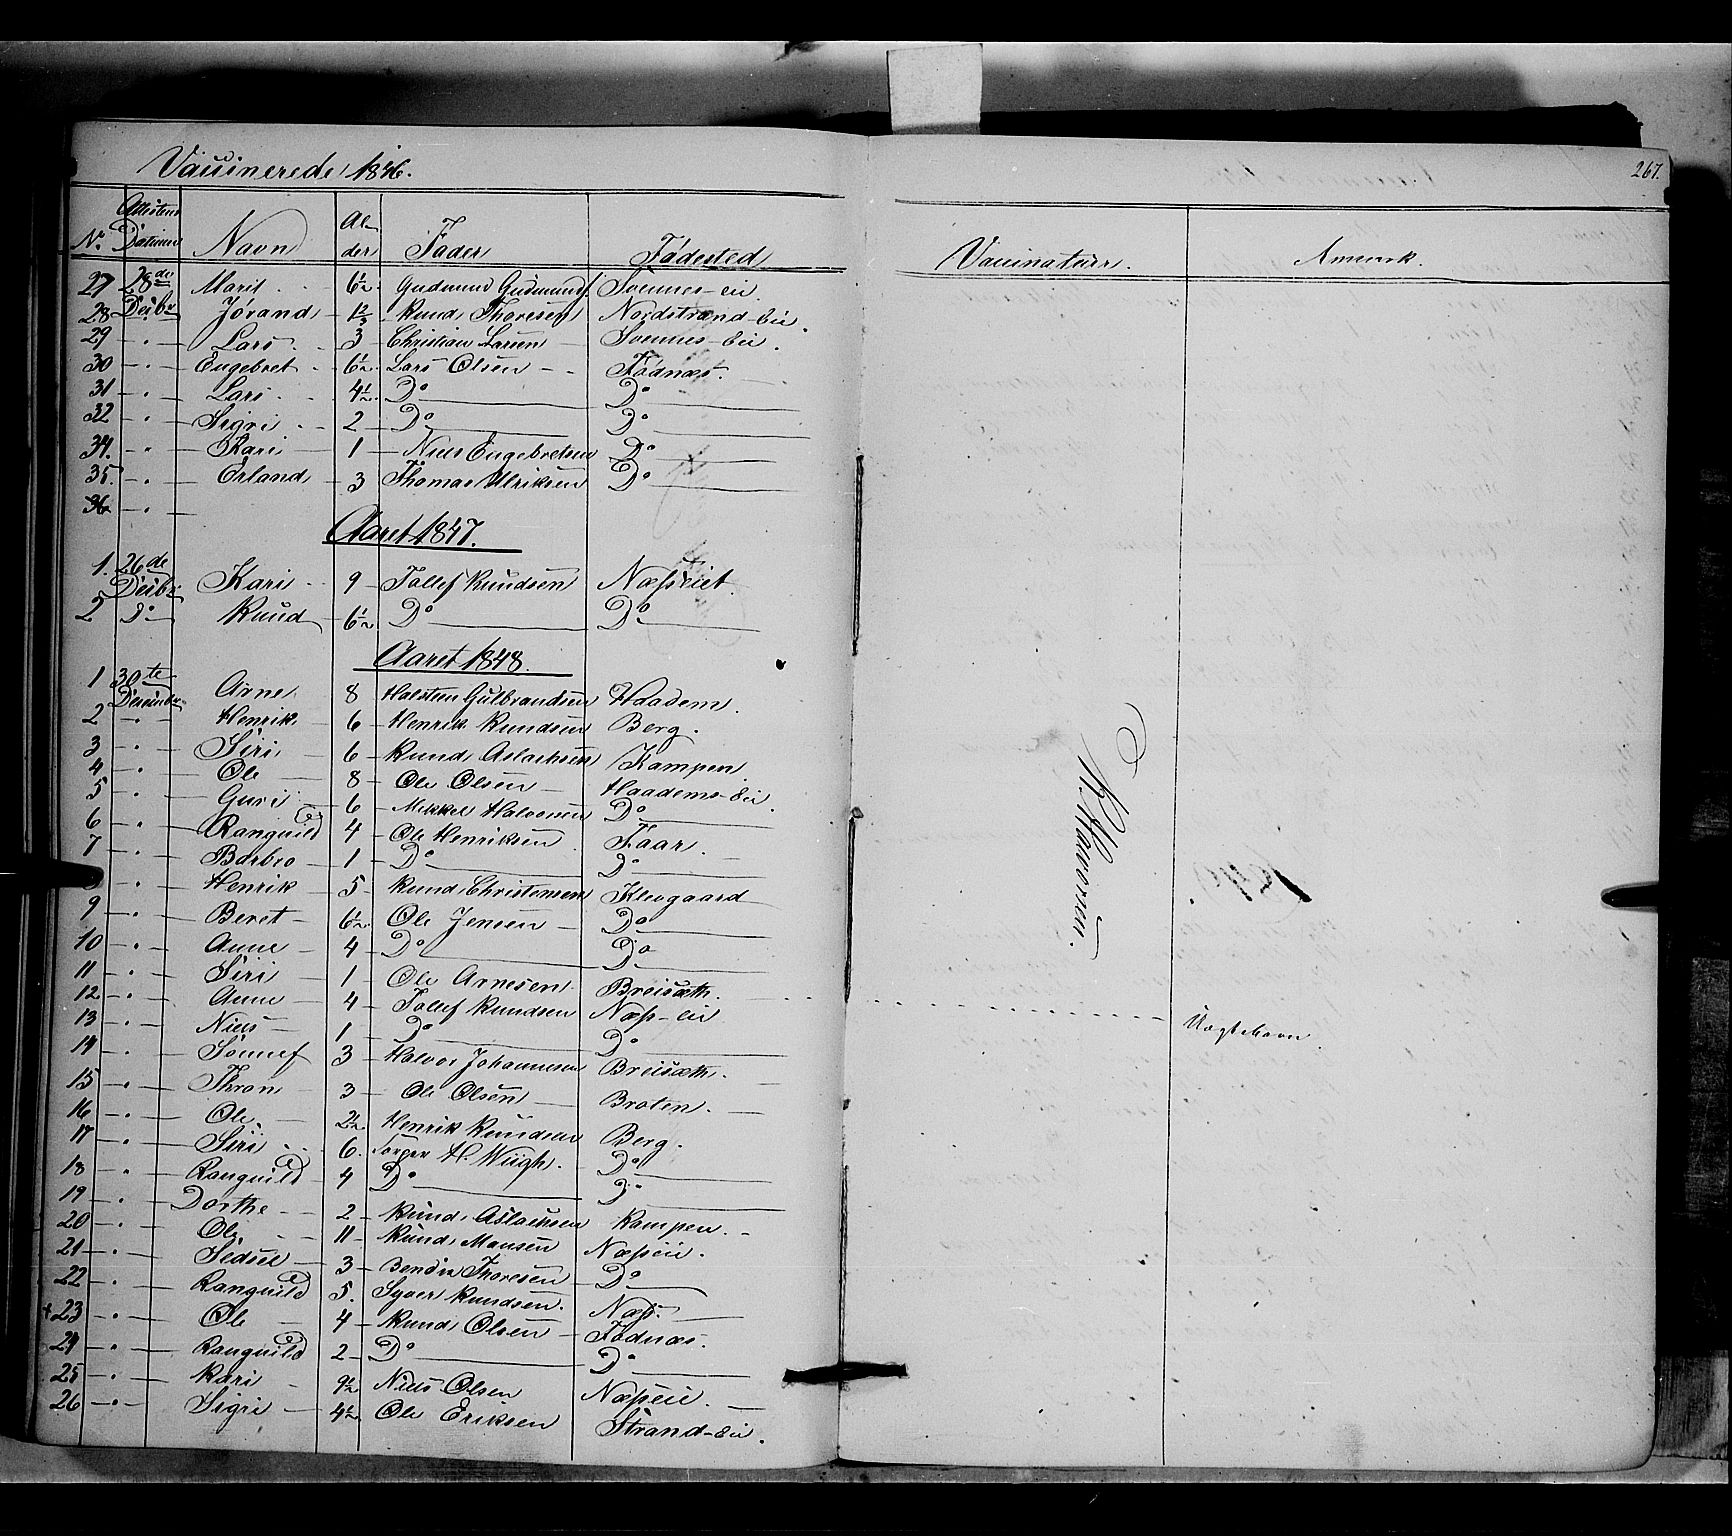 Vaccinerede 1846.
267.
No. Attestens Datum Navn Alder Fader Fødested Vaccinateur. Anmærk.
27 28de Decbr Marit 6½ Gudmund Gudmunds. Svennes-eie.
28 Jørand 1⅔ Knud Thoresen Nordstrand-Eie.
29 - " - Lars 3 Christian Larsen Svennes-Eie.
30 - " - Engebret 6½ Lars Olsen Fødnæs.
31 - " - Lars 4½ Do Do
32 - " - Sigri 2 Do Do
34. - " - Kari 1 Niels Engebretsen Do
35. - " - Erland 3 Thomas Ulriksen Do
36 - " -
Aaret 1847.
1. 26de Decbr Kari 9 Tollef Knudsen Næsseiet.
2 Do Knud 6½ Do Do
Aaret 1848.
1 30te December Arne 8 Halsteen Gulbrandsen Haadem.
2 - " - Henrik 6 Henrik Knudsen Berg.
3 - " - Siri 6 Knud Aslachsen Kampen
4 - " - Ole 8 Ole Olsen Haadems-Eie.
5 - " - Guri 6 Mikkel Halvorsen Do
6 - " - Ranguild 4 Ole Henriksen Faar.
7 - " - Barbro 1 Do Do
8 - " - Henrik 5 Knud Christensen Klevgaard
9 - " - Beret 6½ Ole Jensen Do
10 - " - Anne 4 Do Do
11 - " - Siri 1 Ole Arnesen Breisæth.
12 - " - Anne 4 Tollef Knudsen Næss-eie
13 - " - Niels 1 Do Do
14 - " - Sønnef 3 Halvor Johannesen Breisæth.
15 - " - Thron 3 Ole Olsen Broten.
16 - " - Ole 2½ Henrik Knudsen Berg.
17 - " - Siri 6. Torger H. Wiigh. Do
18 - " - Ranguild 4 Do Do
19 - " - Dorthe 2 Knud Aslachsen Kampen
20 - " - Ole 11 Knud Monsen Næsseie.
21 - " - Sedsel 3 Bendix Thoresen Do
22 - " - Ranguild 5. Syver Knudsen. Næss.
+23 - " - Ole 4 Knud Olsen Fødnæs.
24 - " - Ranguild 2 Do Do
25 - " - Kari 9½ Niels Olsen Næsseie.
26 - " - Sigri 4½ Ole Eriksen Strand-Eie.
K. Halvorsen.
Uægte Barn.